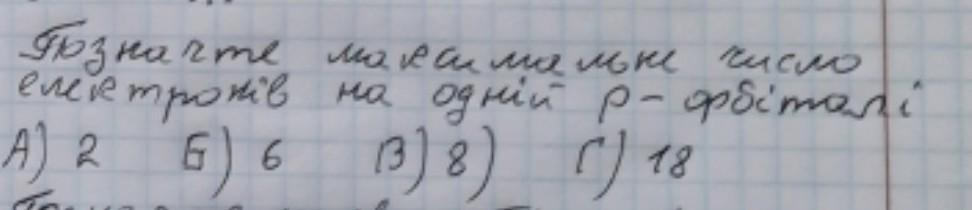 Позначте максимальне число
електронів на одній р - орбіталі
А) 2 Б) 6 В) 8) Г) 18